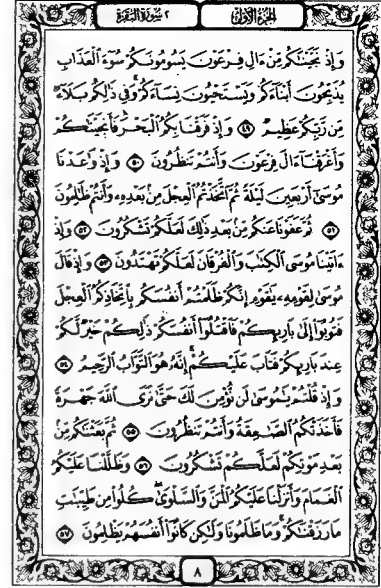 الجزء الأول
٢ سورة البقرة
وَإِذْ نَجَّيْنَٰكُم مِّنْ ءَالِ فِرْعَوْنَ يَسُومُونَكُمْ سُوٓءَ ٱلْعَذَابِ
يُذَبِّحُونَ أَبْنَآءَكُمْ وَيَسْتَحْيُونَ نِسَآءَكُمْ ۚ وَفِى ذَٰلِكُم بَلَآءٌ
مِّن رَّبِّكُمْ عَظِيمٌ ﴿٤٩﴾ وَإِذْ فَرَقْنَا بِكُمُ ٱلْبَحْرَ فَأَنجَيْنَٰكُمْ
وَأَغْرَقْنَآ ءَالَ فِرْعَوْنَ وَأَنتُمْ تَنظُرُونَ ﴿٥٠﴾ وَإِذْ وَٰعَدْنَا
مُوسَىٰٓ أَرْبَعِينَ لَيْلَةً ثُمَّ ٱتَّخَذْتُمُ ٱلْعِجْلَ مِنۢ بَعْدِهِۦ وَأَنتُمْ ظَٰلِمُونَ
﴿٥١﴾ ثُمَّ عَفَوْنَا عَنكُم مِّنۢ بَعْدِ ذَٰلِكَ لَعَلَّكُمْ تَشْكُرُونَ ﴿٥٢﴾ وَإِذْ
ءَاتَيْنَا مُوسَى ٱلْكِتَٰبَ وَٱلْفُرْقَانَ لَعَلَّكُمْ تَهْتَدُونَ ﴿٥٣﴾ وَإِذْ قَالَ
مُوسَىٰ لِقَوْمِهِۦ يَٰقَوْمِ إِنَّكُمْ ظَلَمْتُمْ أَنفُسَكُم بِٱتِّخَاذِكُمُ ٱلْعِجْلَ
فَتُوبُوٓا۟ إِلَىٰ بَارِئِكُمْ فَٱقْتُلُوٓا۟ أَنفُسَكُمْ ذَٰلِكُمْ خَيْرٌ لَّكُمْ
عِندَ بَارِئِكُمْ فَتَابَ عَلَيْكُمْ ۚ إِنَّهُۥ هُوَ ٱلتَّوَّابُ ٱلرَّحِيمُ ﴿٥٤﴾
وَإِذْ قُلْتُمْ يَٰمُوسَىٰ لَن نُّؤْمِنَ لَكَ حَتَّىٰ نَرَى ٱللَّهَ جَهْرَةً
فَأَخَذَتْكُمُ ٱلصَّٰعِقَةُ وَأَنتُمْ تَنظُرُونَ ﴿٥٥﴾ ثُمَّ بَعَثْنَٰكُم مِّنۢ
بَعْدِ مَوْتِكُمْ لَعَلَّكُمْ تَشْكُرُونَ ﴿٥٦﴾ وَظَلَّلْنَا عَلَيْكُمُ
ٱلْغَمَامَ وَأَنزَلْنَا عَلَيْكُمُ ٱلْمَنَّ وَٱلسَّلْوَىٰ ۖ كُلُوا۟ مِن طَيِّبَٰتِ
مَا رَزَقْنَٰكُمْ ۖ وَمَا ظَلَمُونَا وَلَٰكِن كَانُوٓا۟ أَنفُسَهُمْ يَظْلِمُونَ ﴿٥٧﴾
٨